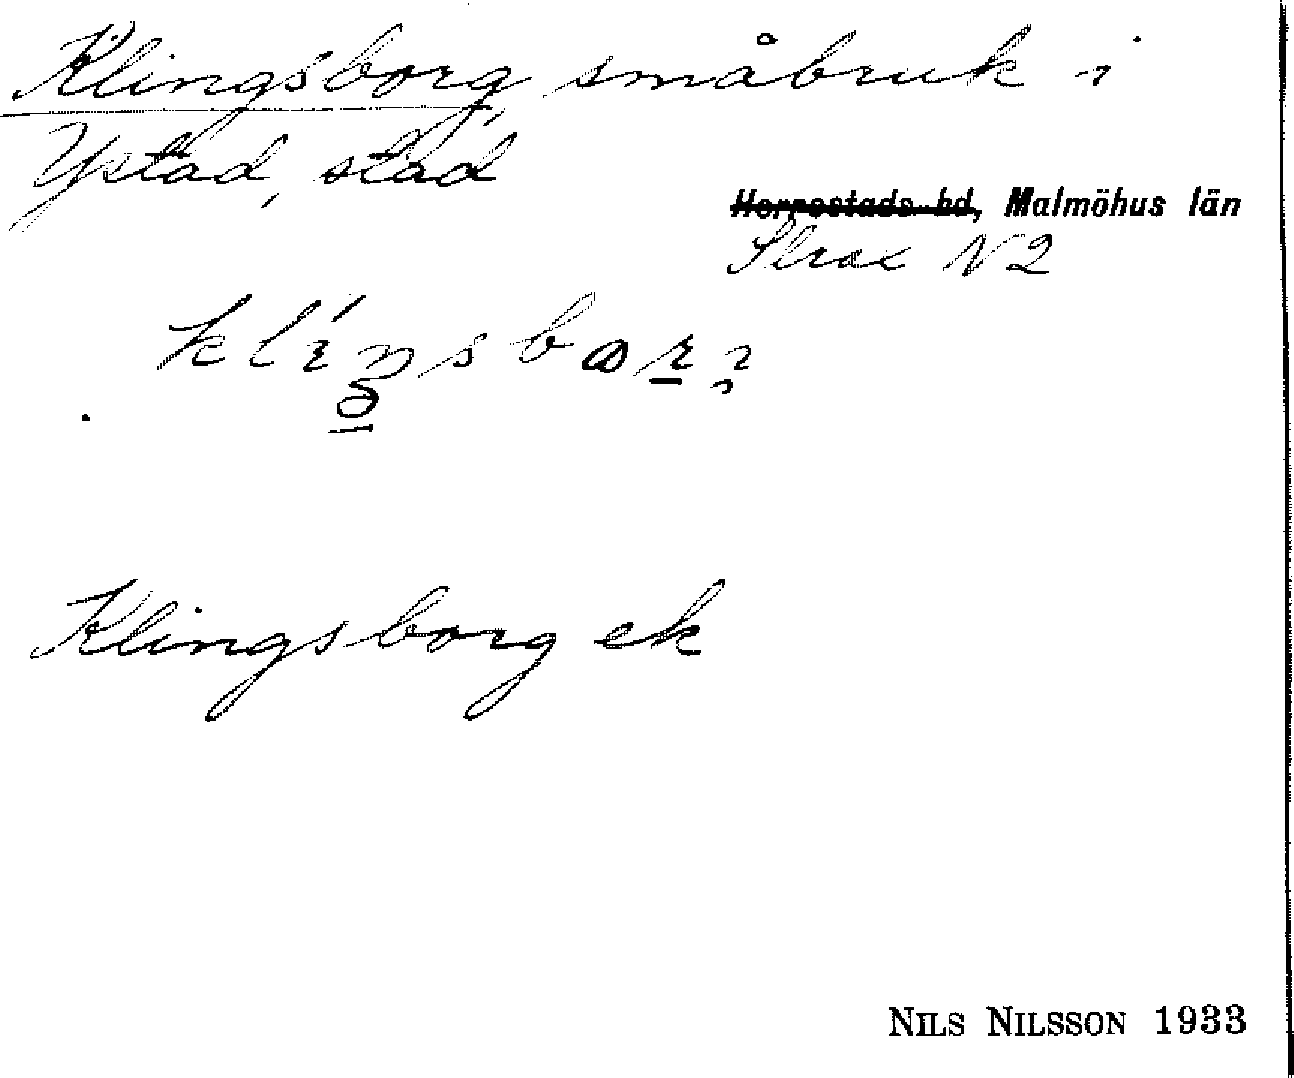 Klingsborg småbruk i
Ystad, stad
Herrestads hd, Malmöhus län
Strax N 2
Klingsborg ek
NILS NILSSON 1933